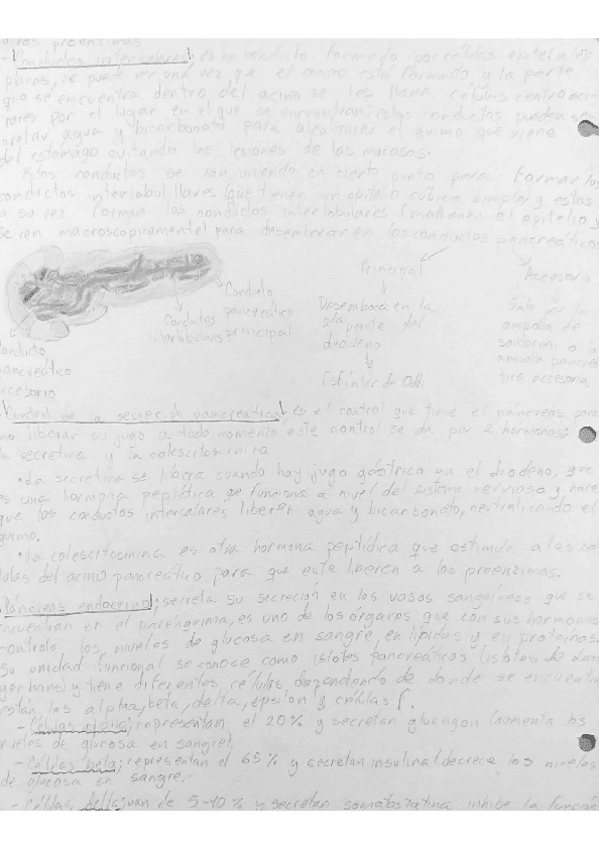 otras proenzimas
- Conductos intercalares: es un conducto formado por células epiteliales
placas, se puede ver una vez que el acino está formado y la parte
que se encuentra dentro del acino se les llama células centroaci-
nares por el lugar en el que se encuentran; estos conductos pueden se-
cretar agua y bicarbonato para alcalinizar el quimo que viene
del estómago evitando las lesiones de las mucosas.
Estos conductos se van uniendo en cierto punto para formar los
conductos interlobulillares (que tienen un epitelio cúbico simple) y estos
a su vez forman los conductos interlobulares (mantienen el epitelio y
se ven macroscópicamente) para desembocar en los conductos pancreáticos
Principal
Accesorio
Desemboca en la
2da parte del
duodeno
Esfínter de Oddi
Sale por la
ampolla de
santorini o la
ampolla pancreá-
tica accesoria
Conducto
pancreático
principal
Conductos
interlobulares
Conducto
pancreático
accesorio
Control de la secreción pancreática: es el control que tiene el páncreas para
no liberar su jugo a todo momento este control se da por 2 hormonas:
la secretina y la colescitocinina
• La secretina se libera cuando hay jugo gástrico en el duodeno, que
es una hormona peptídica que funciona a nivel del sistema nervioso y hace
que los conductos intercalares liberen agua y bicarbonato, neutralizando el
quimo.
• La colescitocinina es otra hormona peptídica que estimula a las cé-
lulas del acino pancreático para que este liberen a las proenzimas.
Páncreas endocrino: secreta su secreción en los vasos sanguíneos que se
encuentran en el parénquima, es uno de los órganos que con sus hormonas
controla los niveles de glucosa en sangre, en lípidos y en proteínas.
Su unidad funcional se conoce como islotes pancreáticos (islotes de Lan-
gerhans) y tiene diferentes células dependiendo de donde se encuentran
están las alpha, beta, delta, epsilon y células f.
- Células alpha; representan el 20% y secretan glucagon (aumenta los
niveles de glucosa en sangre).
- Células beta; representan el 65% y secretan insulina (decrece los niveles
de glucosa en sangre.
- Células delta; van de 5-10% y secretan somatostatina inhibe la función